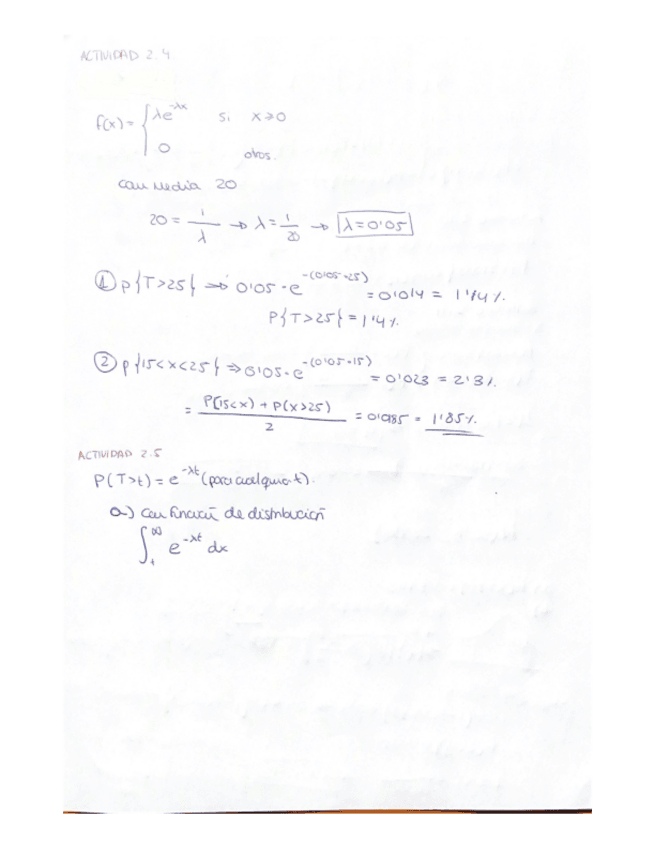 ACTIVIDAD 2.4
f(x) = { λe^-λx si x≥0
0 otros.
con media 20
20 = 1/λ → λ = 1/20 → λ = 0'05
① P{T>25} → 0'05 · e^-(0'05·25) = 0'014 = 1'4%
P{T>25} = 1'4%
② P{15<x<25} ⇒ 0'05 · e^-(0'05·15) = 0'023 = 2'3%
= P(15<x) + P(x>25) / 2 = 0'0185 = 1'85%
ACTIVIDAD 2.5
P(T>t) = e^-λt (para cualquier t).
a) Con función de distribución
∫_t^∞ e^-λt dx